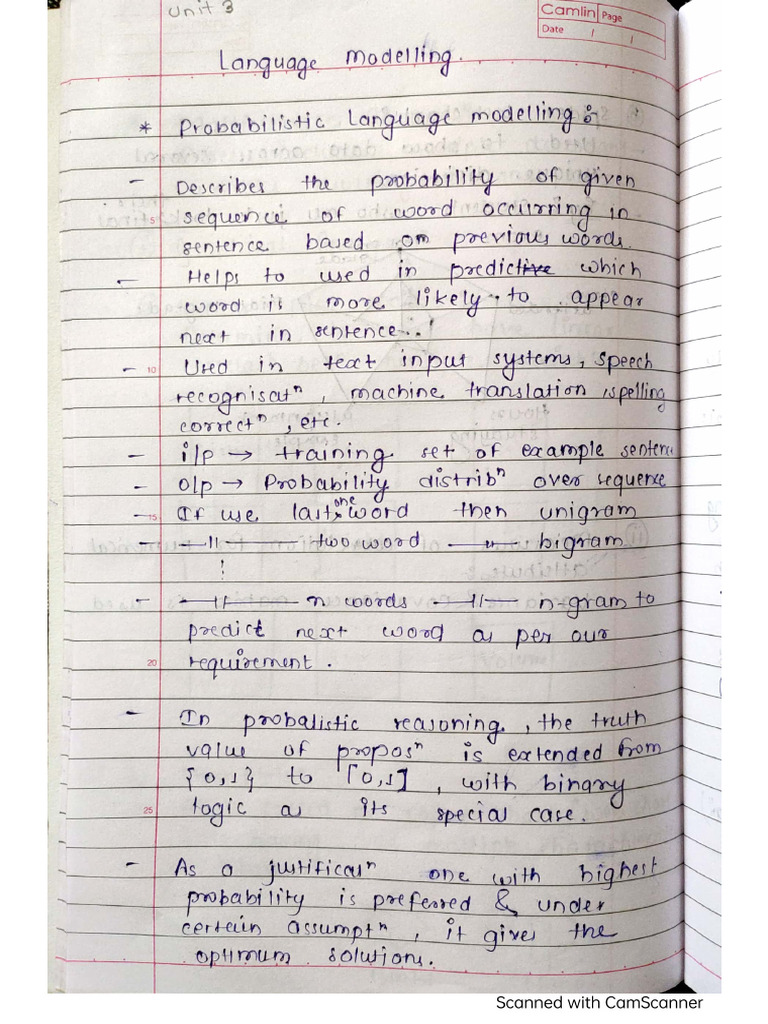 Unit 3
Camlin Page
Date / /
Language Modelling.
* Probabilistic Language modelling :-
- Describes the probability of given
5 sequence of word occurring in
sentence based on previous words.
- Helps to used in predict which
word is more likely to appear
next in sentence..!
- 10 Used in text input systems, speech
recognisatⁿ, machine translation, spelling
correctⁿ, etc.
- i/p → training set of example sentence
- o/p → Probability distribⁿ over sequence
- 15 If use last one word then unigram
- —11— two word - 11 - bigram
!
- —11— n words —11— n-gram to
predict next word as per our
20 requirement.
- In probalistic reasoning, the truth
value of proposⁿ is extended from
{0,1} to [0,1], with binary
25 logic as its special case.
- As a justificatⁿ one with highest
probability is preferred & under
certain assumptⁿ, it gives the
optimum solutions.
Scanned with CamScanner